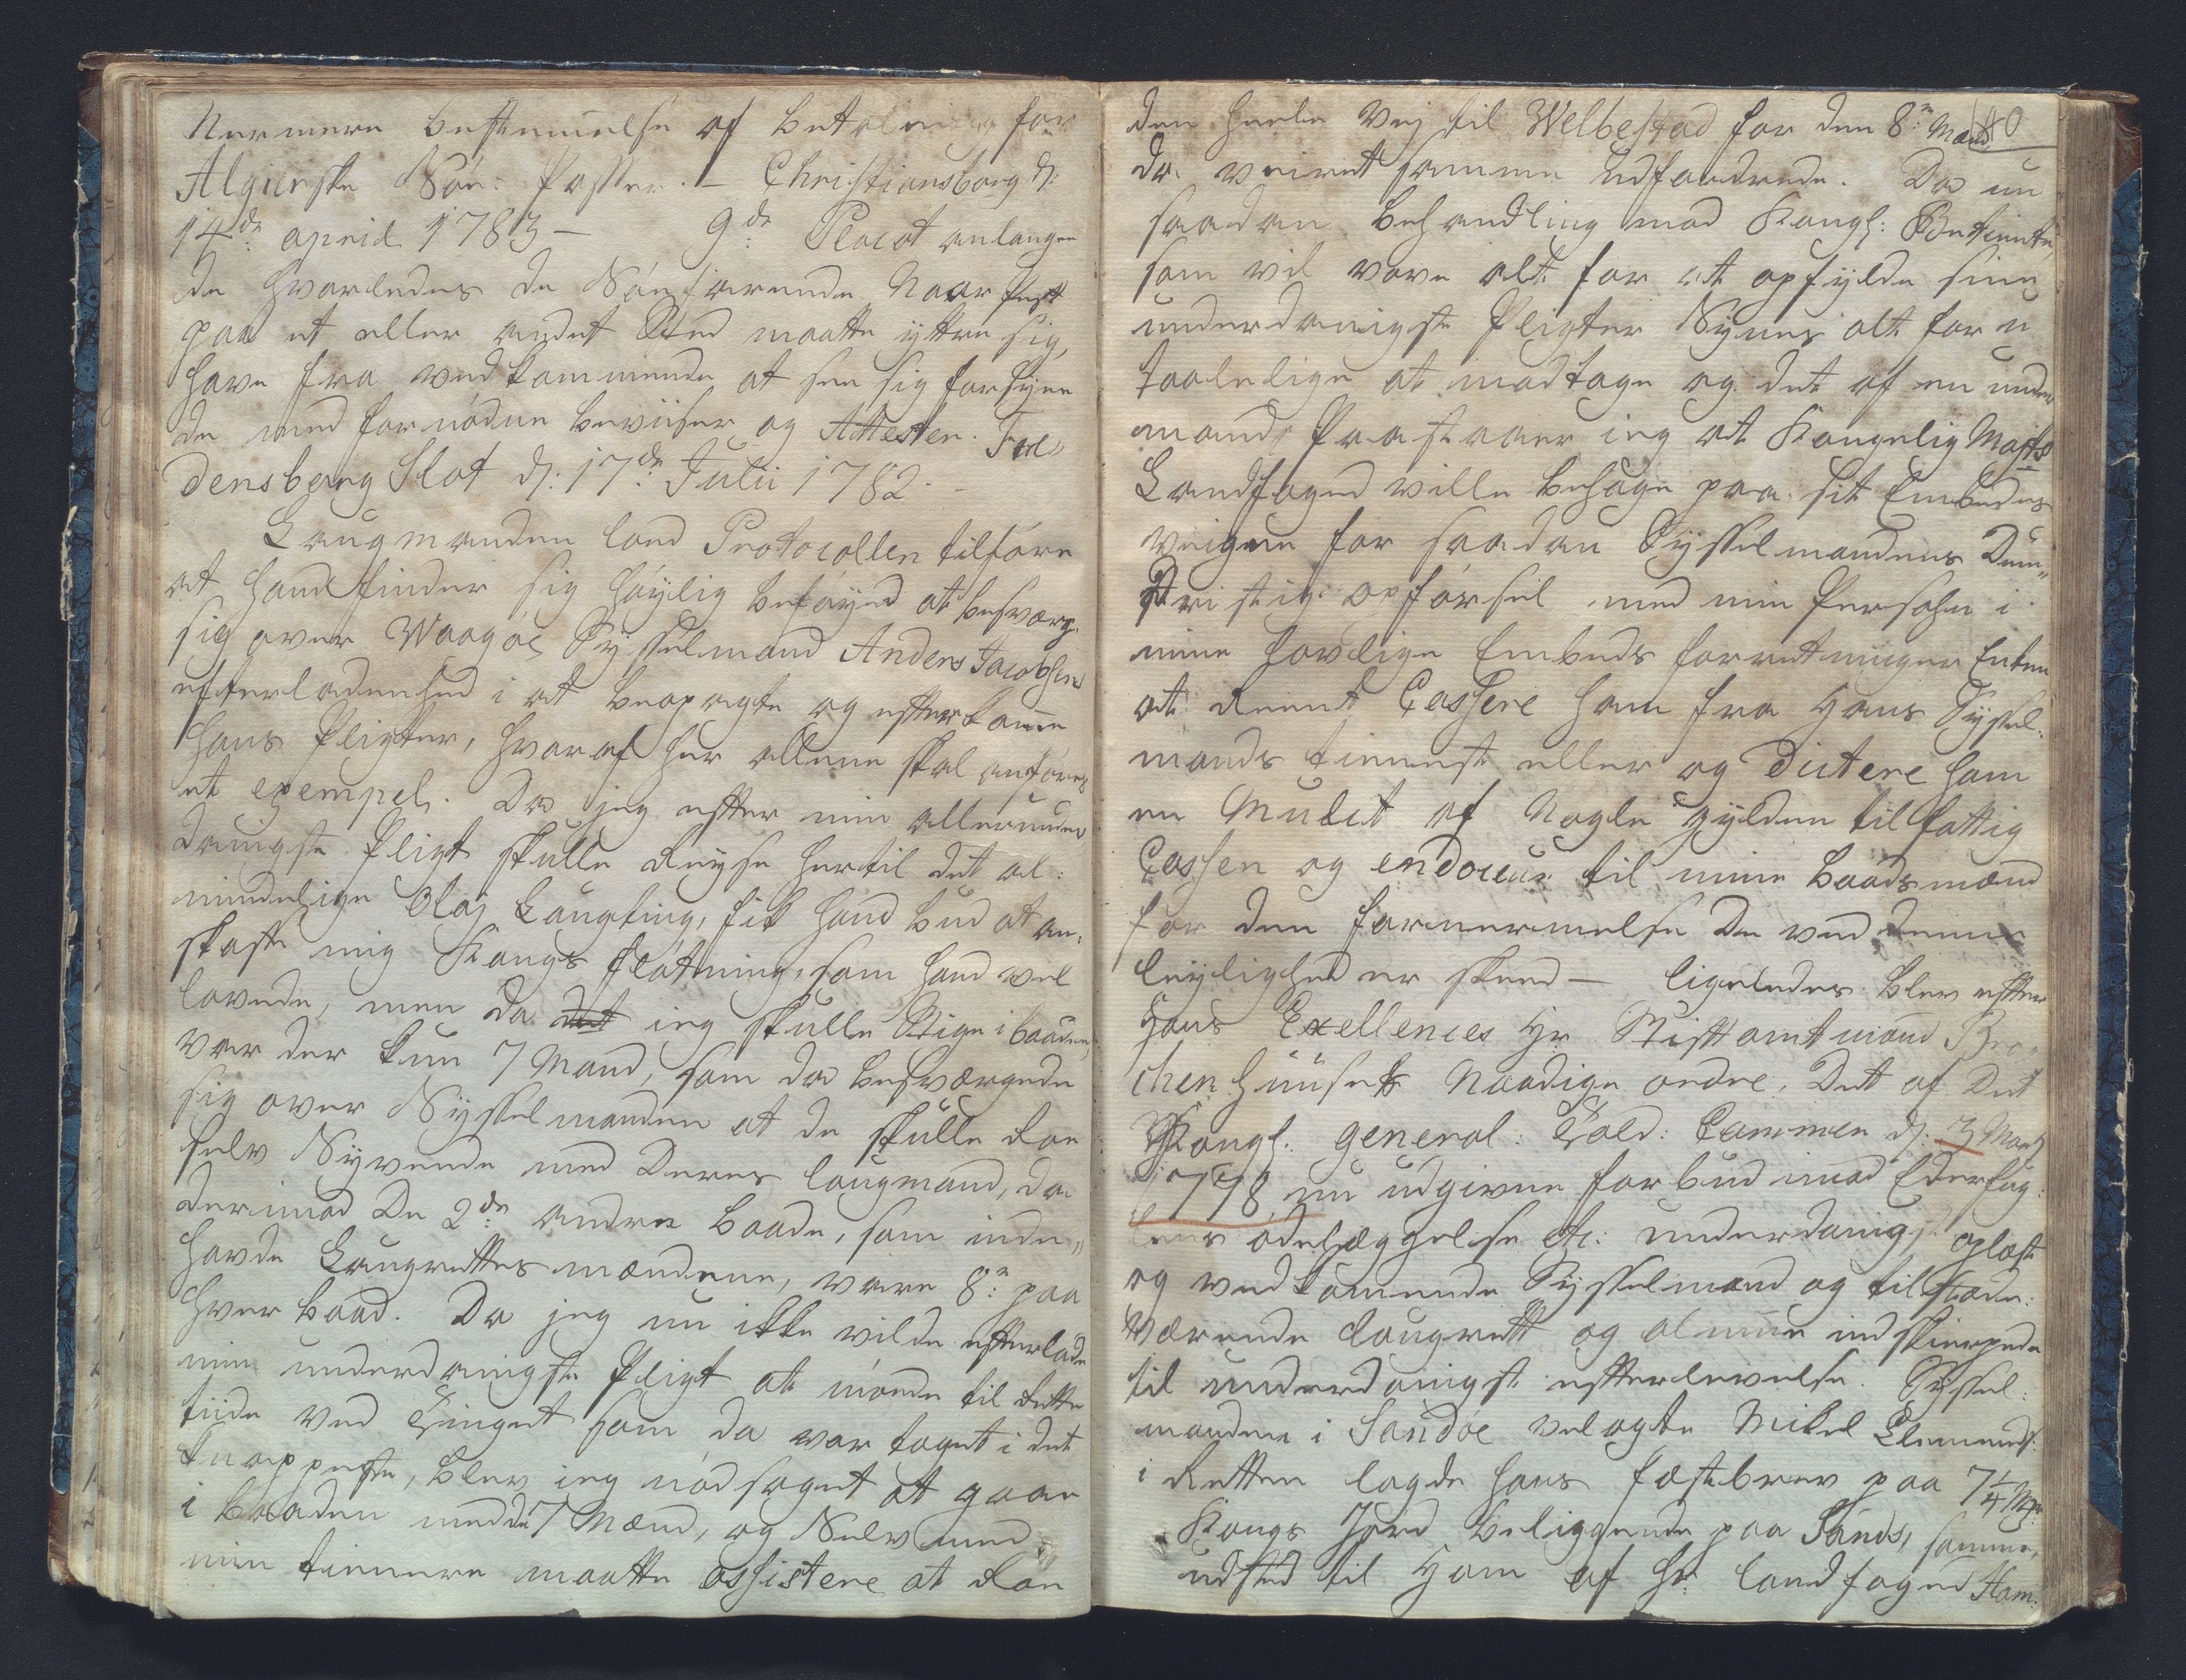 Nermere bestemmelse af betalning for
Algierske Søe: Passer. – Christiansborg d:
14de april 1783 – 9de Placat anlangen
de hvorledes de Søefarende Naar Pest
paa et eller andet Sted maatte yttre sig,
have fra vedkommende at see sig forsyne
de med fornødne beviiser og Attester. Fre
densborg Slot d: 17de Julii 1782. –
Laugmanden lod Protocollen tilføre
at hand finder sig høylig beføyed at besværge
sig over Waagøe Sysselmand Anders Jacobsens
efterladenhed i at beopagte og efterkome
hans Pligter, hvoraf her allene skal anføres
et exempel. Da jeg efter min allerunder
danigste Pligt skulle Reyse hertil det al:
mindelige Olaj Laugting, fik hand bud at an,
skaffe mig Kongs fløtning, som hand vel
lovede, men da det ieg skulle Stige i baaden,
var der kun 7 Mand, som da besværgede
sig over Sysselmanden at de skulle Roe
selv Syvende med Deres laugmand, da
derimod De 2de andre Baade, som inde„
havde Laugrettesmændene, vare 8te paa
hver baad. Da jeg nu ikke vilde efterlade
min underdanigste Pligt at møede til rette
tiide ved Tinget som da var taget i det
knappeste, blev ieg nødsaget at gaae
i Baaden med de 7 Mænd, og Selv med
min tiennere maatte assistere at Roe
den heele Vej til Welbestad for den 8te Mand 40
da veiret samme udfordrede. Da nu
saadan behandling mod Kongl: Betiente,
som vil vove alt for at opfylde sine
underdanigste Pligter Synes alt for u
taalelige at modtage og det af en under
mand, Paastaaer ieg at Kongelig Maj:ts
Landfoged ville behage paa sit Embedes
veigne for saadan Sysselmandens Dum„
dristig opførsel med min Persohn i
mine lovlige Embeds forretninger Enten
at reent Cassere ham fra Hans Syssel:
mands tienneste eller og dictere ham
en Mulct af Nogle gylden til fattig
Cassen og endocuur til mine baadsmænd
for den fornermelse De ved denne
leylighed er skeed – ligeledes blev efter
Hans Exellences Hr Stiftamtmand Bra,
chenhuuses Naadige ordre, det af Det
Kongl. general: Told: Cammer d: 3 Martj
1778 nu udgivne forbud imod Ederfug:
lens ødelæggelse etc: underdanigst oplæst
og vedkomende Sysselmænd og tilstæde:
værende laugrett og almue indskierpede
til underdanigst efterlevelse. Syssel:
manden i Sandøe velagte Mikel Clements:
i Retten lagde hans fæstebrev paa 7 1/4 Mrk:
Kongs Jord beliggende paa Sands, samme,
udsted til Ham af Hr: landfoged Ham: